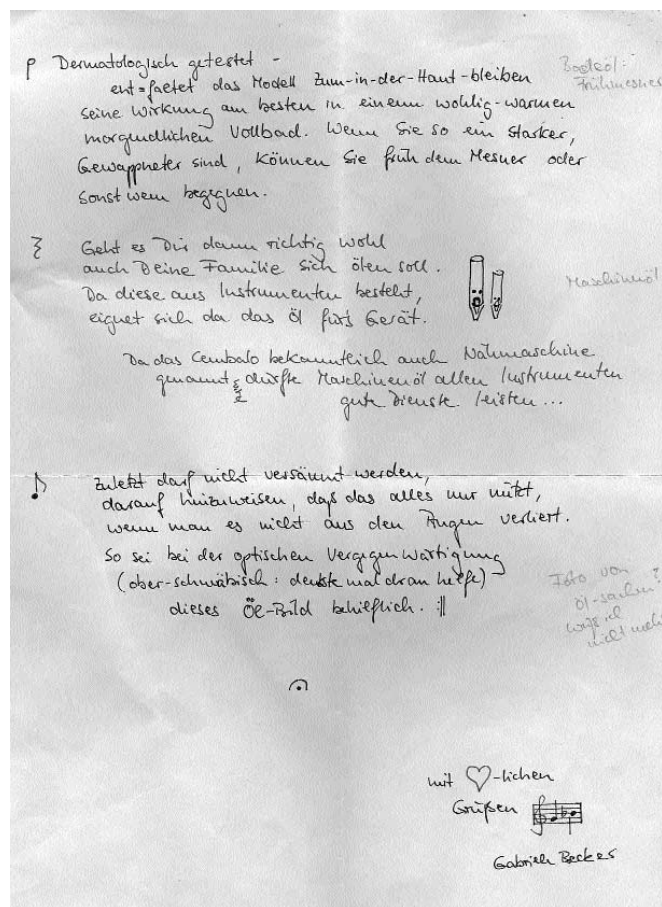 Dermatologisch getestet -
ent=faltet das Modell Zum-in-der-Haut-bleiben
seine Wirkung am besten in einem wohlig-warmen
morgendlichen Vollbad. Wenn Sie so ein starker,
Gewappneter sind, können Sie früh dem Mesner oder
sonst wem begegnen.
Badeöl:
Frühmesner
Geht es Dir dann richtig wohl
auch Deine Familie sich ölen soll.
Da diese aus Instrumenten besteht,
eignet sich da das Öl fürs Gerät.
Maschinenöl
Da das Cembalo bekanntlich auch Nähmaschine
genannt, dürfte Maschinenöl allen Instrumenten
gute Dienste leisten...
Zuletzt darf nicht versäumt werden,
darauf hinzuweisen, daß das alles nur nützt,
wenn man es nicht aus den Augen verliert.
So sei bei der optischen Vergegenwärtigung
(ober-schwäbisch: denkste mal dran helfe)
dieses Öl-Bild behilflich. :||
Foto von
Öl-sachen?
weiß ich
nicht mehr
mit ♡-lichen
Grüßen
Gabriele Beckes